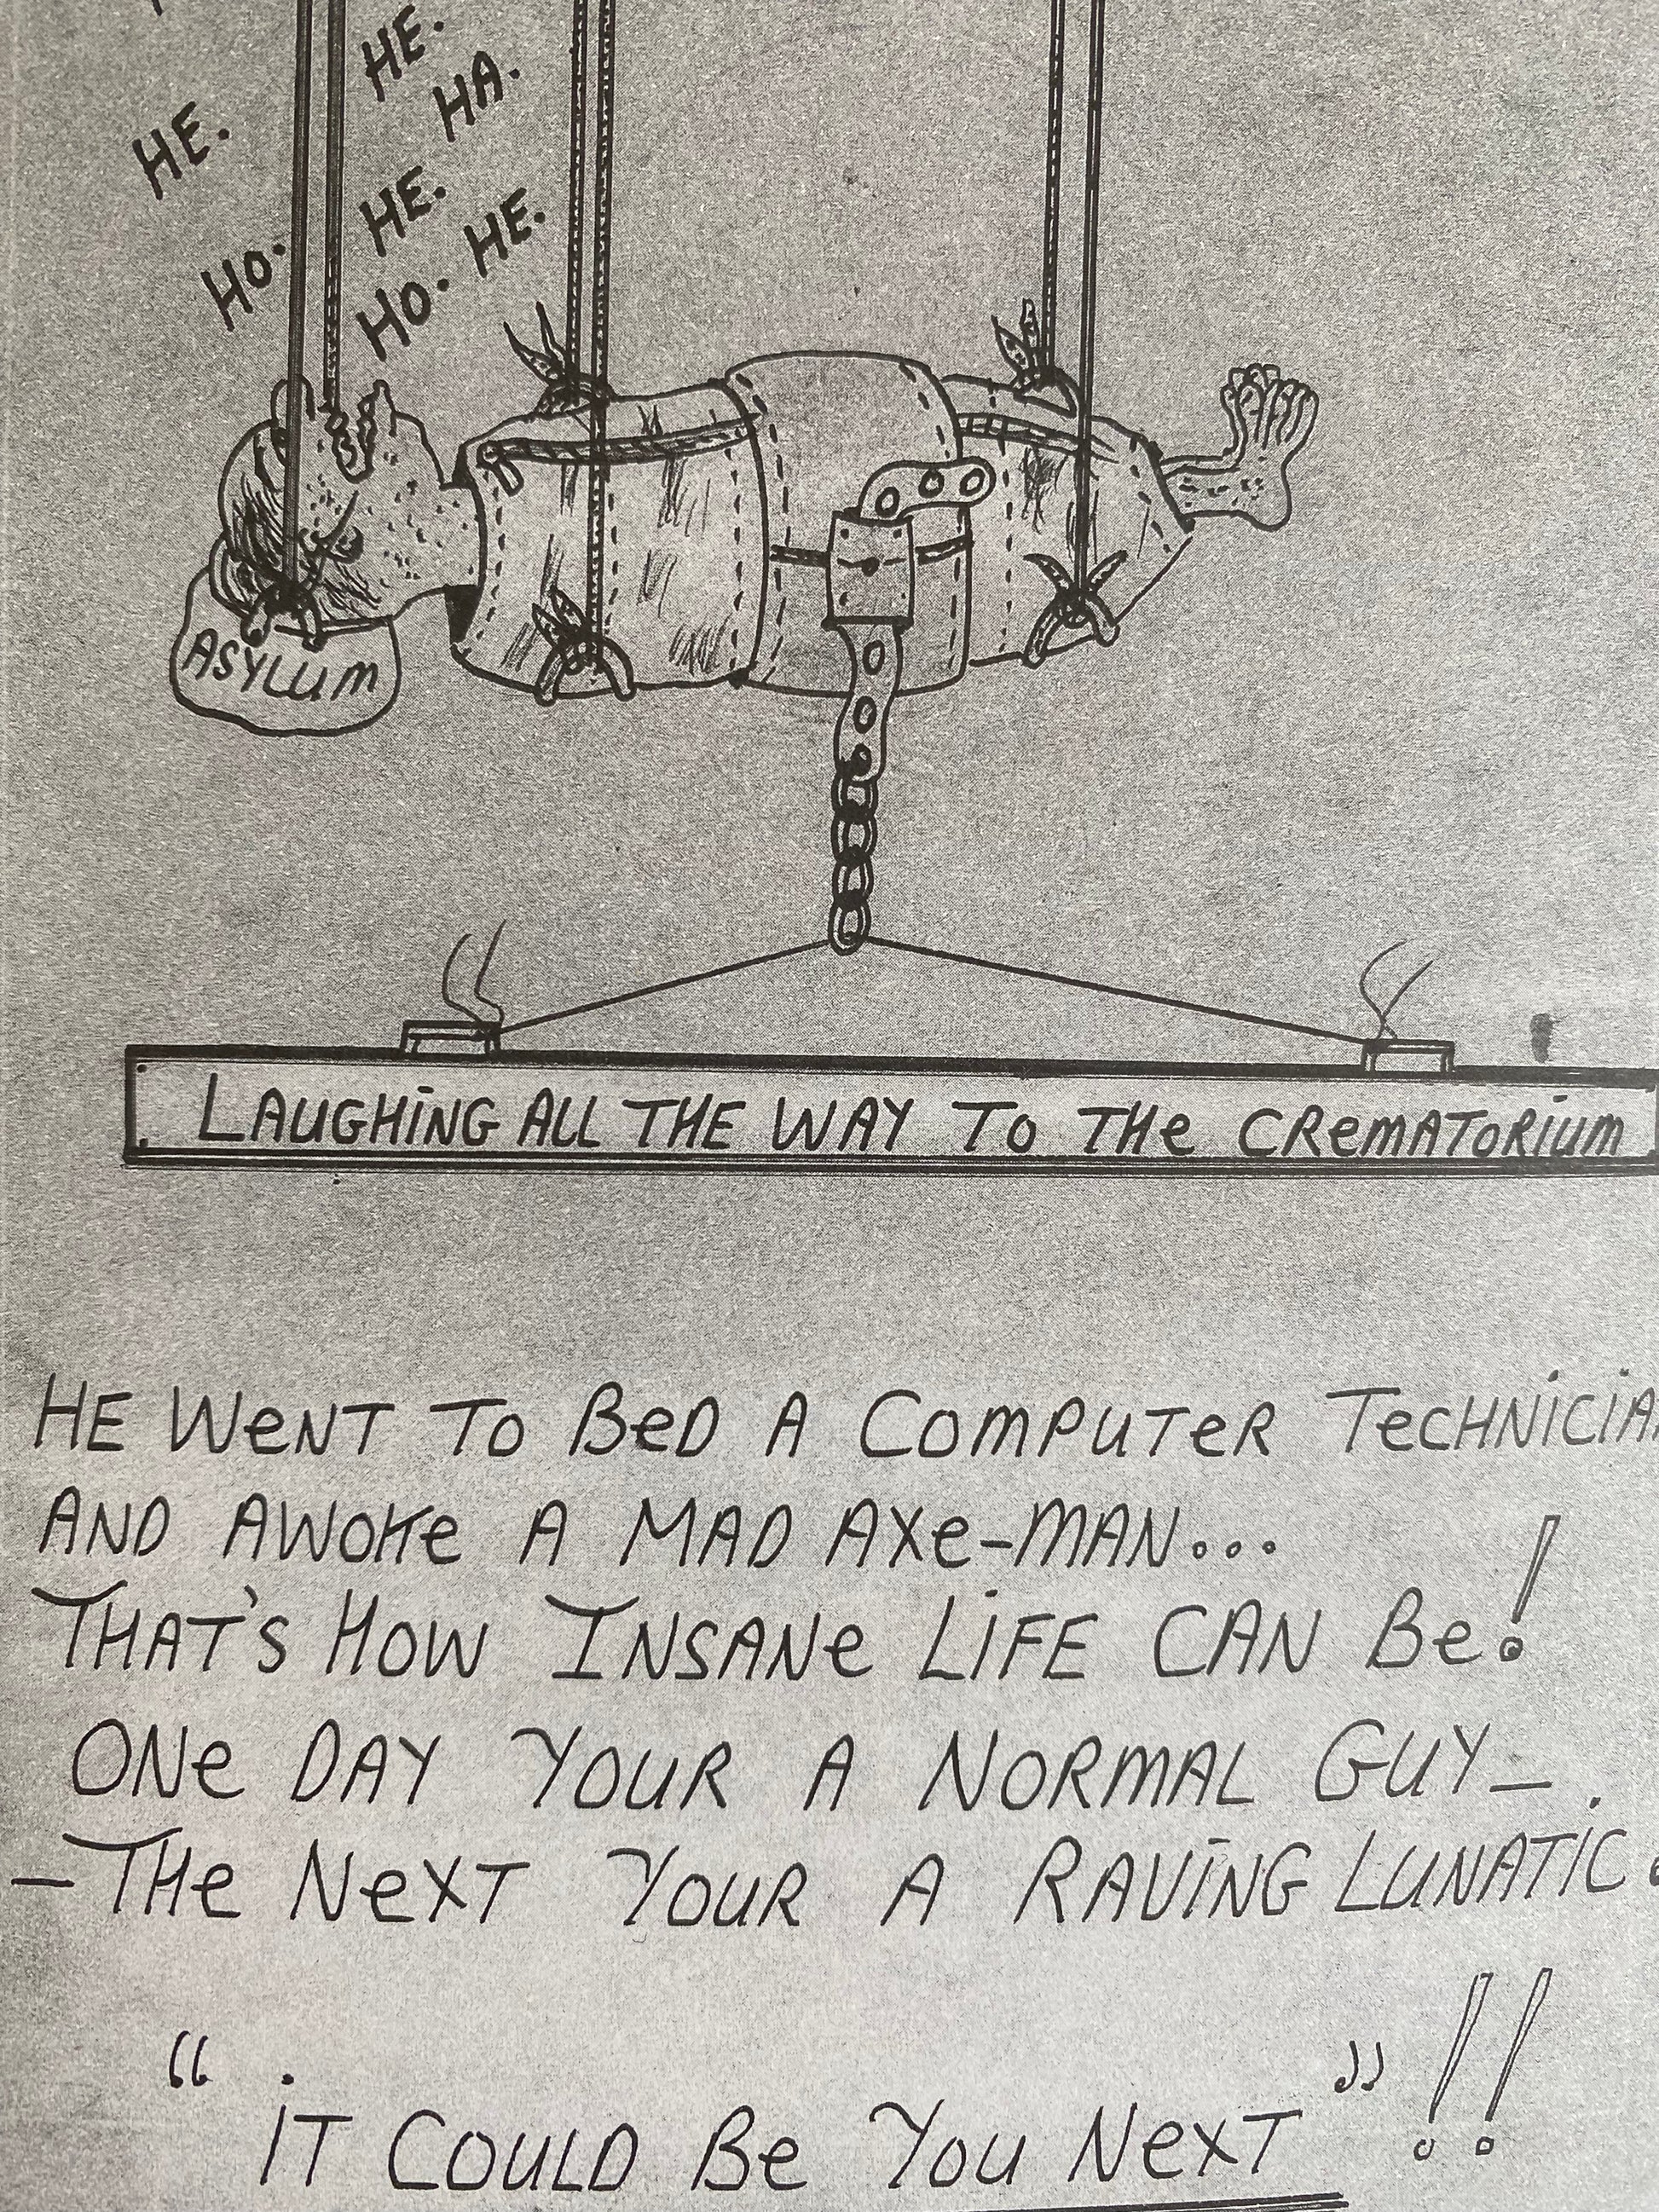 HE.
HA.
HE.
HE.
HE.
HO.
HO.
ASYLUM
LAUGHING ALL THE WAY TO THE CREMATORIUM
HE WENT TO BED A COMPUTER TECHNICIAN
AND AWOKE A MAD AXE-MAN...
THAT'S HOW INSANE LIFE CAN BE!
ONE DAY YOUR A NORMAL GUY_
-THE NEXT YOUR A RAVING LUNATIC.
"IT COULD BE YOU NEXT"!!